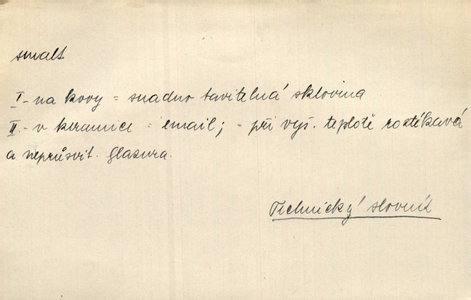 smalt
I - na kovy = snadno tavitelná sklovina
II - v keramice = email; - při vyš. teplotě roztékavá
a neprůsvit. glazura.
Technický slovník